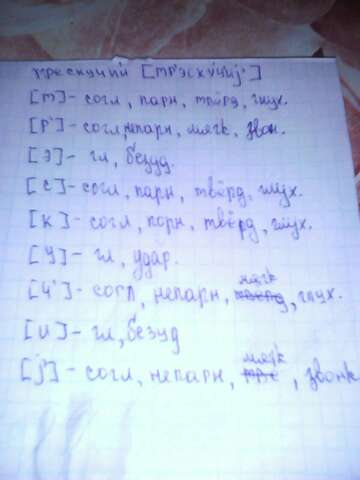 трескучий [тр'эскуч'ий']
[т] - согл, парн, твёрд, глух.
[р'] - согл, непарн, мягк, звон.
[э] - гл, безуд.
[с] - согл, парн, твёрд, глух.
[к] - согл, парн, твёрд, глух.
[у] - гл, удар.
[ч'] - согл, непарн, мягк, глух.
[и] - гл, безуд
[j'] - согл, непарн, мягк, звонк